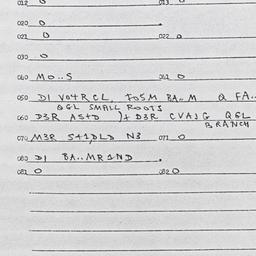 012 0 013 0
020 0
021 0 022 0
030 0
040 MO..S 041 0
050 DI VO4RCL, FOSM BA..M Q FA..
QGL SMALL ROOTS
060 D3R AS+D )+ D3R CVAJG QGL
BRANCH
070 M3R S+1,DLD N3 071 0
080 DI BA..MR1ND
081 0 082 0